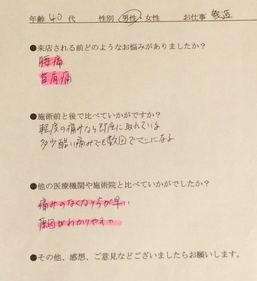 年齢 40 代 性別 男性・女性 お仕事 製造
●来店される前どのようなお悩みがありましたか?
腰痛
背有痛
●施術前と後で比べていかがですか?
軽度の痛みなら即座に取れている
多少酷い痛みでも数回で になる
●他の医療機関や施術院と比べていかがでしたか?
痛みのなくなり方が早い
原因がわかりやすい
●その他、感想、ご意見などございましたらお願いします。